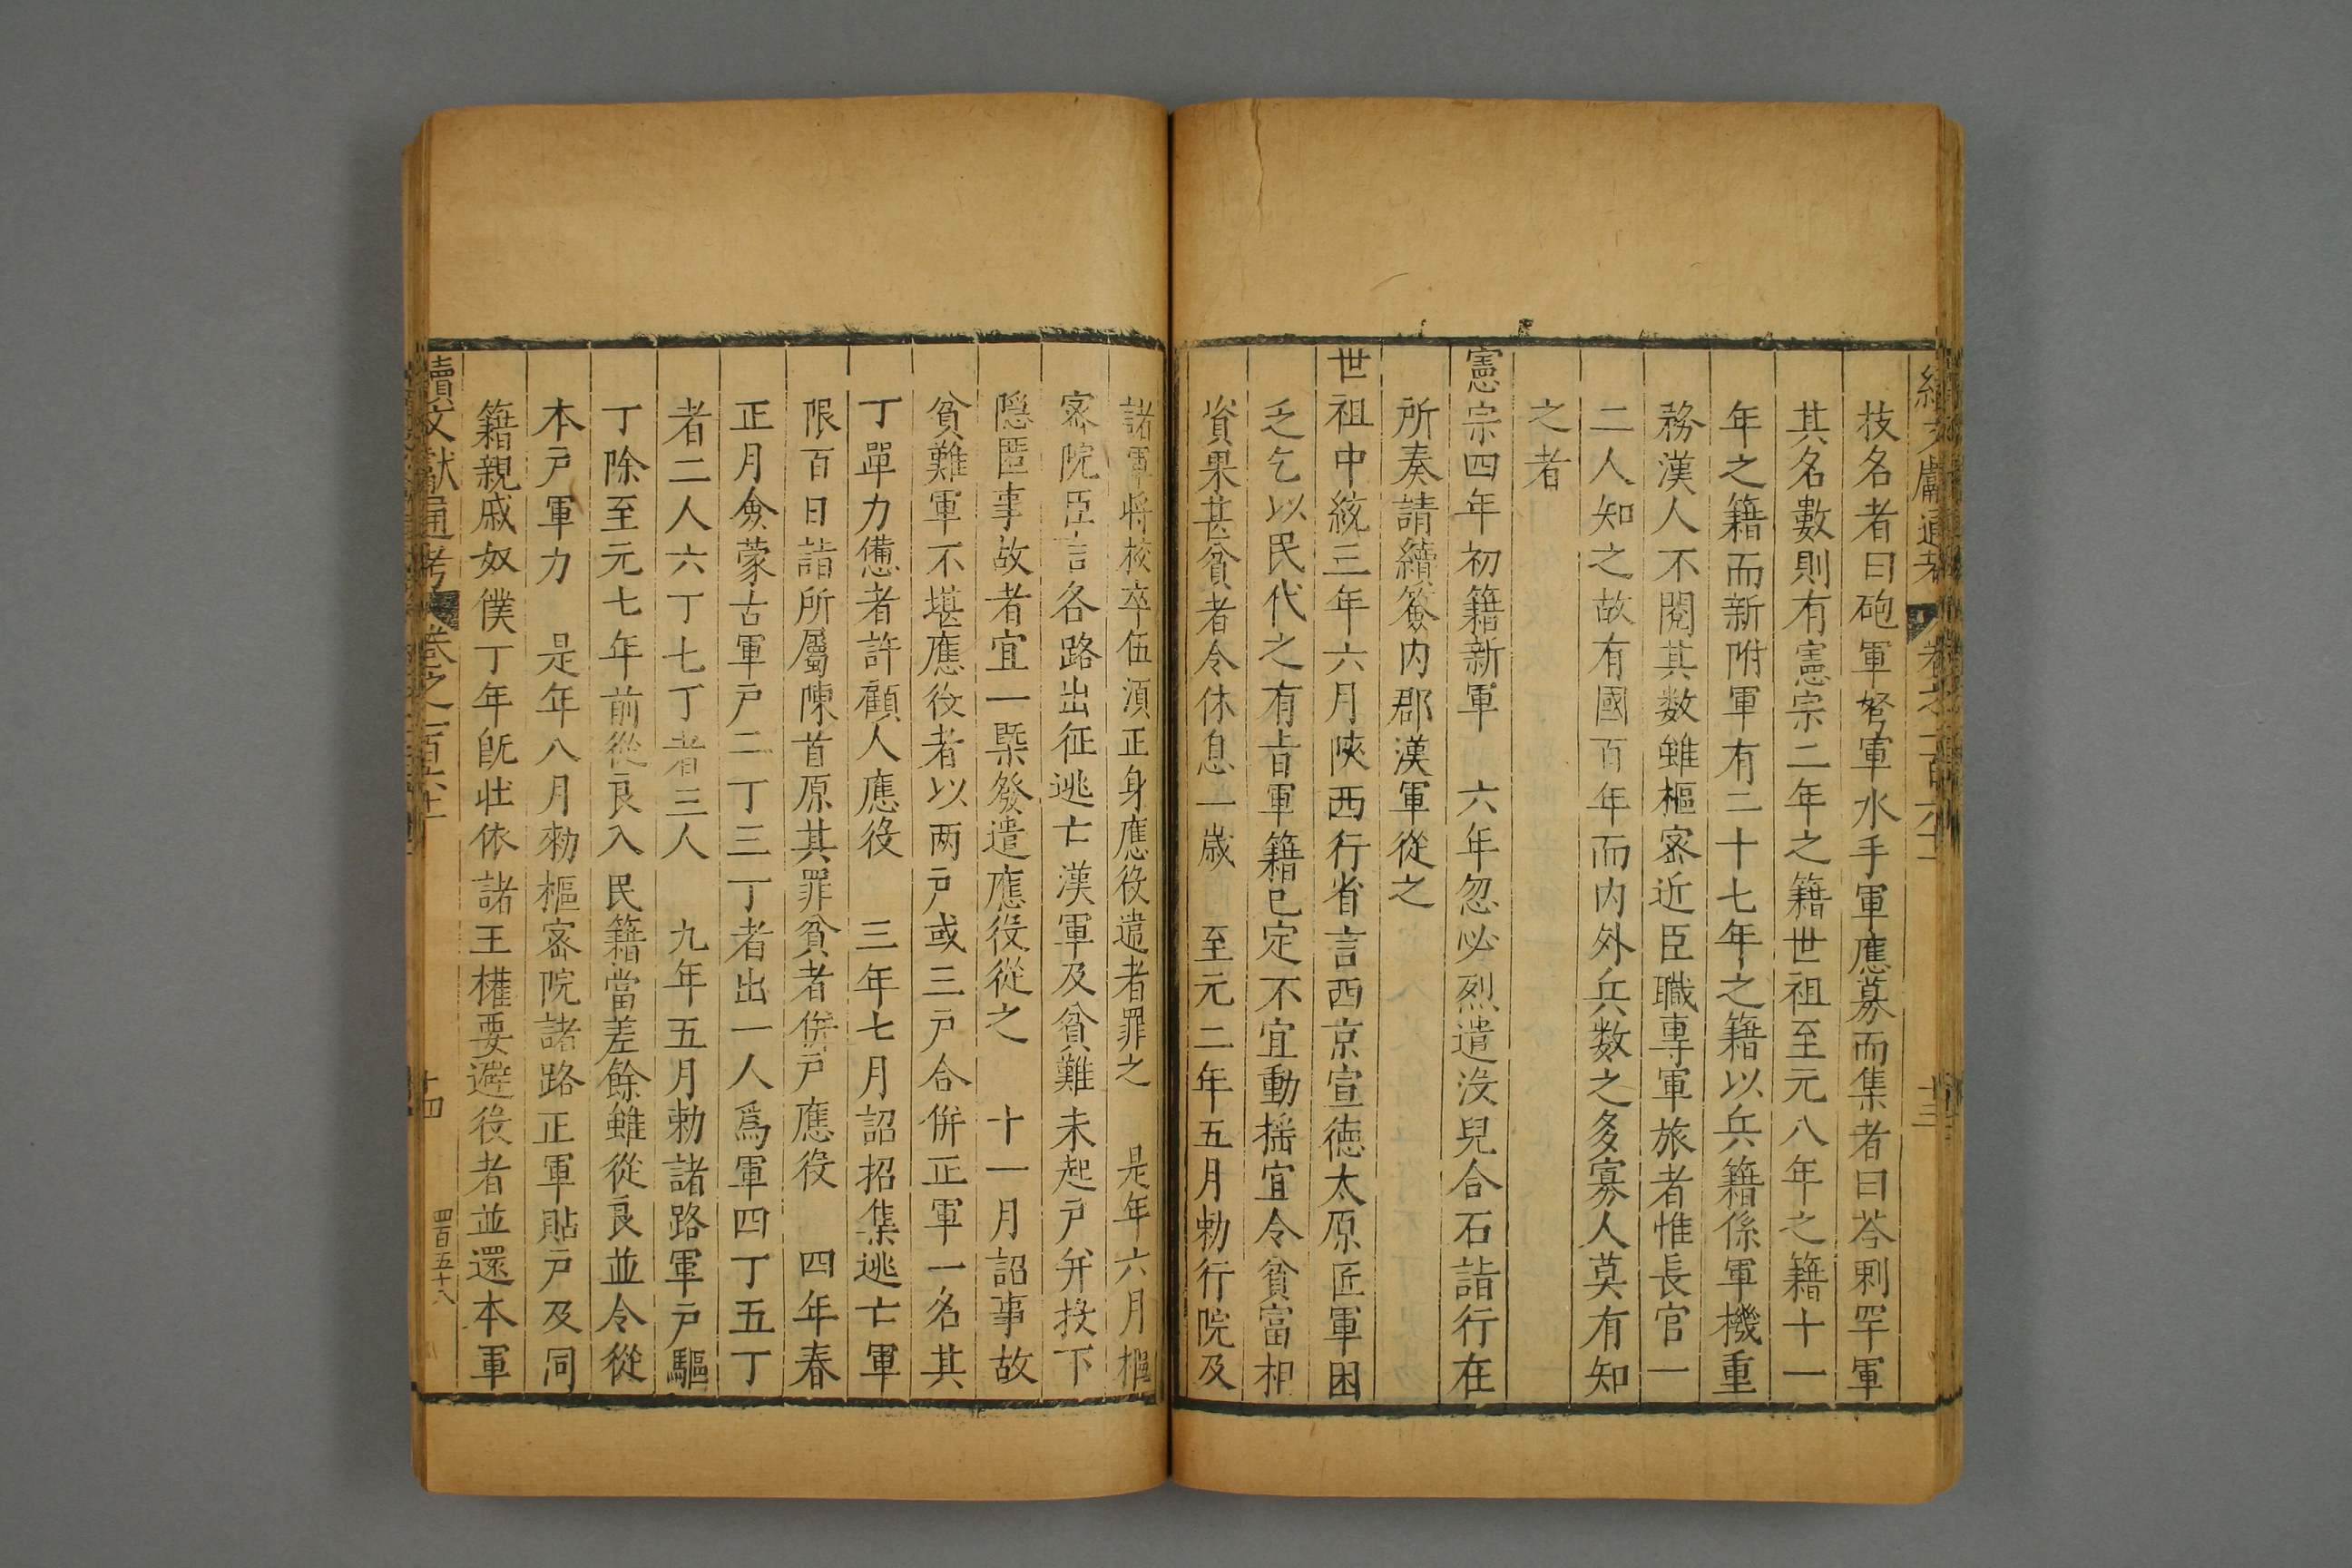 續文獻通考 卷之一百六十一 十三
技名者曰砲軍弩軍水手軍應募而集者曰荅剌罕軍
其名數則有憲宗二年之籍世祖至元八年之籍十一
年之籍而新附軍有二十七年之籍以兵籍係軍機重
務漢人不閱其数雖樞宻近臣職專軍旅者惟長官一
二人知之故有國百年而内外兵数之多寡人莫有知
之者
憲宗四年初籍新軍 六年忽必烈遣沒兒合石詣行在
所奏請續簽内郡漢軍從之
世祖中統三年六月陜西行省言西京宣徳太原匠軍困
乏乞以民代之有旨軍籍已定不宜動揺宜令貧富相
資果甚貧者令休息一歳 至元二年五月勅行院及
諸軍将核卒伍湏正身應役遣者罪之 是年六月樞
宻院臣言各路出征逃亡漢軍及貧難未起戸并投下
隠匿事故者宜一槩發遣應役從之 十一月詔事故
貧難軍不堪應役者以两戸或三戸合併正軍一名其
丁單力憊者許顧人應役 三年七月詔招集逃亡軍
限百日詣所屬陳首原其罪貧者併戸應役 四年春
正月僉蒙古軍戸二丁三丁者出一人爲軍四丁五丁
者二人六丁七丁者三人 九年五月勅諸路軍戸驅
丁除至元七年前從良入民籍當差餘雖從良並令從
本戸軍力 是年八月勑樞宻院諸路正軍貼戸及同
籍親戚奴僕丁年旣壮依諸王權要避役者並還本軍
續文獻通考 卷之一百六十一 十四 四百五十八